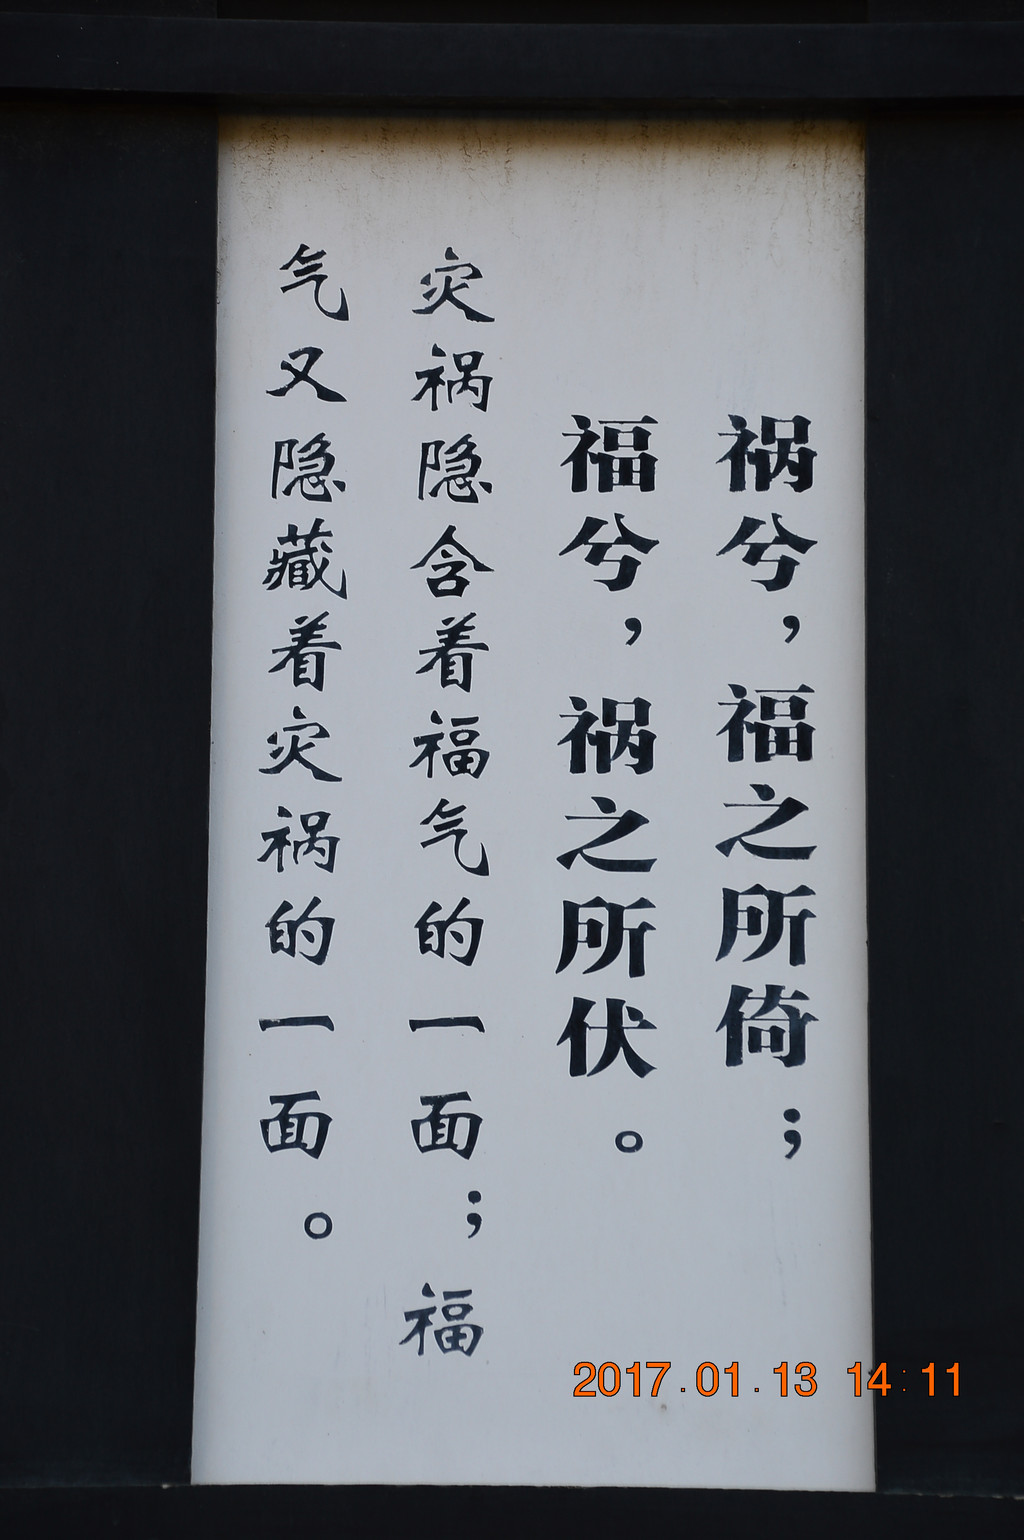 祸兮，福之所倚；
福兮，祸之所伏。
灾祸隐含着福气的一面；福
气又隐藏着灾祸的一面。
2017.01.13 14:11